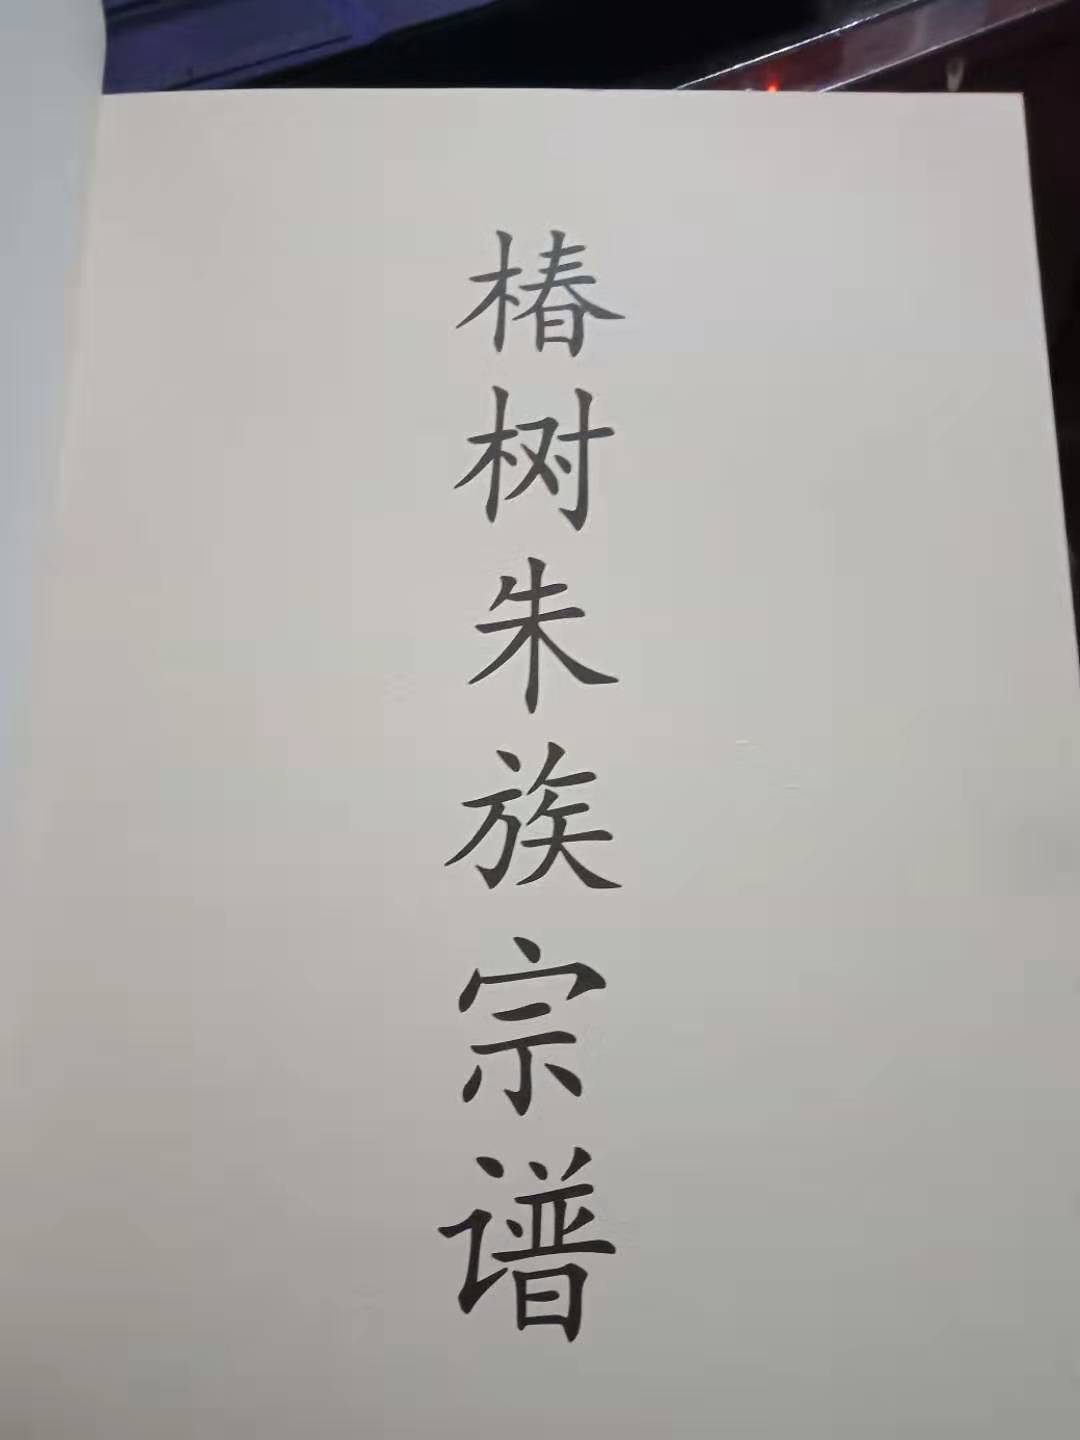 椿树朱族宗谱